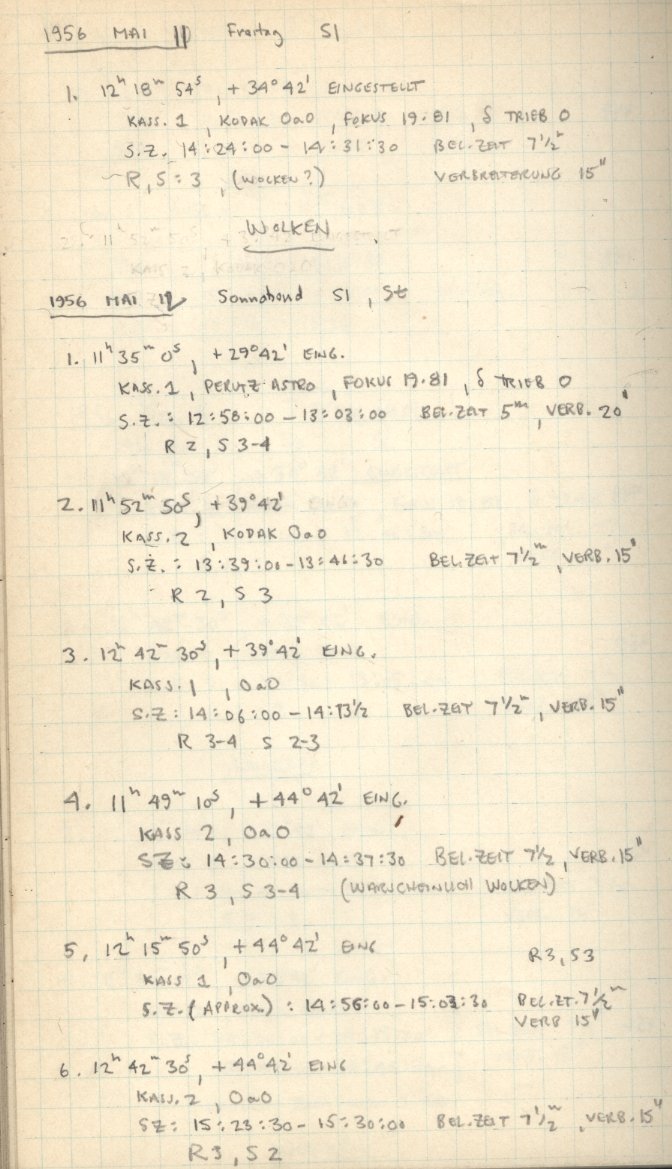 1956 MAI 11 Freitag SI
1. 12ʰ 18ᵐ 54ˢ, +34°42' EINGESTELLT
KASS. 1, KODAK OaO, FOKUS 19.81, δ TRIEB 0
S.Z. 14:24:00 - 14:31:30 BEL.ZEIT 7½ᵐ
~R,S:3, (WOCKEN?) VERBREITERUNG 15"
WOLKEN
1956 MAI 12 Sonnabend SI, St
1. 11ʰ 35ᵐ 0ˢ, +29°42' EING.
KASS. 1, PERUTZ ASTRO, FOKUS 19.81, δ TRIEB 0
S.Z.: 12:58:00 - 13:03:00 BEL.ZEIT 5ᵐ, VERB. 20"
R 2, S 3-4
2. 11ʰ 52ᵐ 50ˢ, +39°42'
KASS. 2, KODAK OaO
S.Z.: 13:39:00 - 13:46:30 BEL.ZEIT 7½ᵐ, VERB. 15"
R 2, S 3
3. 12ʰ 42ᵐ 30ˢ, +39°42' EING.
KASS. 1, OaO
S.Z: 14:06:00 - 14:13½ BEL.ZEIT 7½ᵐ, VERB. 15"
R 3-4 S 2-3
4. 11ʰ 49ᵐ 10ˢ, +44°42' EING.
KASS 2, OaO
SZ: 14:30:00 - 14:37:30 BEL.ZEIT 7½, VERB. 15"
R 3, S 3-4 (WARSCHEINLICH WOLKEN)
5, 12ʰ 15ᵐ 50ˢ, +44°42' EING R3, S3
KASS 1, OaO
S.Z. (APPROX.): 14:56:00 - 15:03:30 BEL.ZT. 7½ᵐ
VERB 15"
6. 12ʰ 42ᵐ 30ˢ, +44°42' EING
KASS. 2, OaO
SZ: 15:23:30 - 15:30:00 BEL.ZEIT 7½ᵐ, VERB. 15"
R3, S2